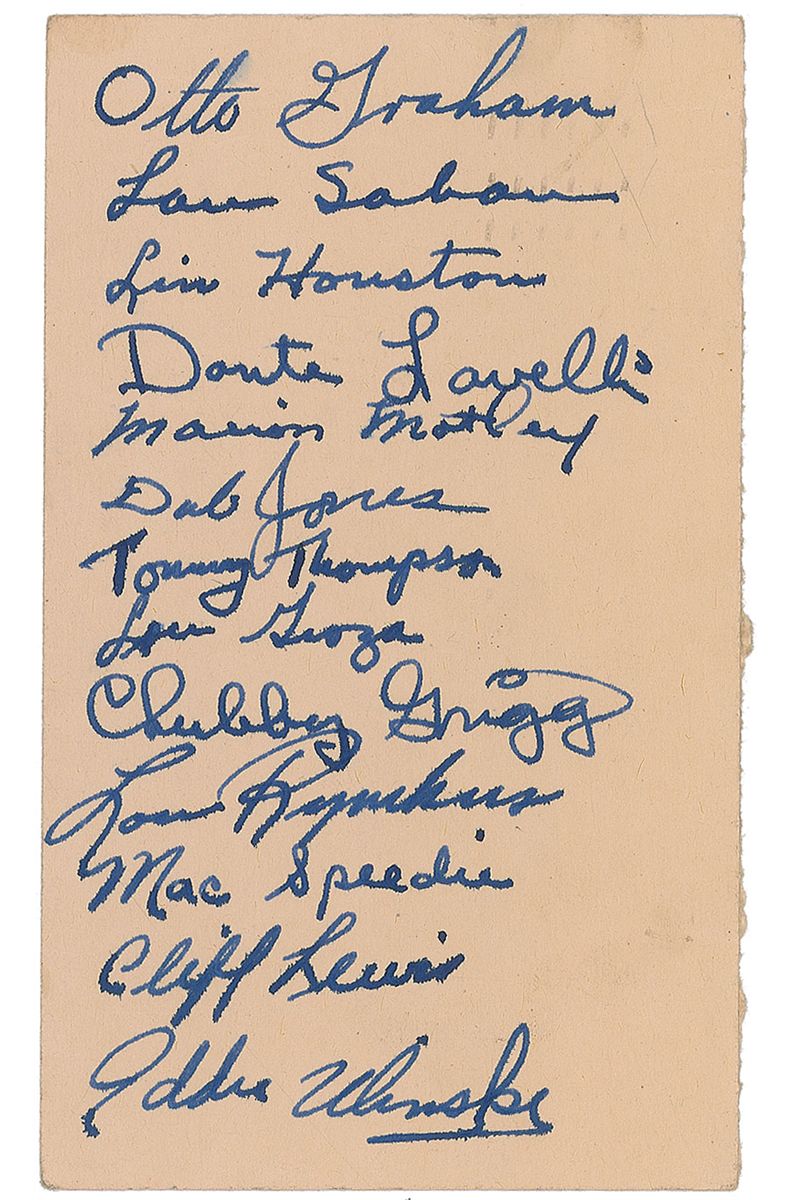 Otto Graham
Lou Saban
Lin Houston
Dante Lavelli
Marion Motley
Dub Jones
Tommy Thompson
Lou Groza
Chubby Grigg
Lou Rymkus
Mac Speedie
Cliff Lewis
Eddie Ulinski